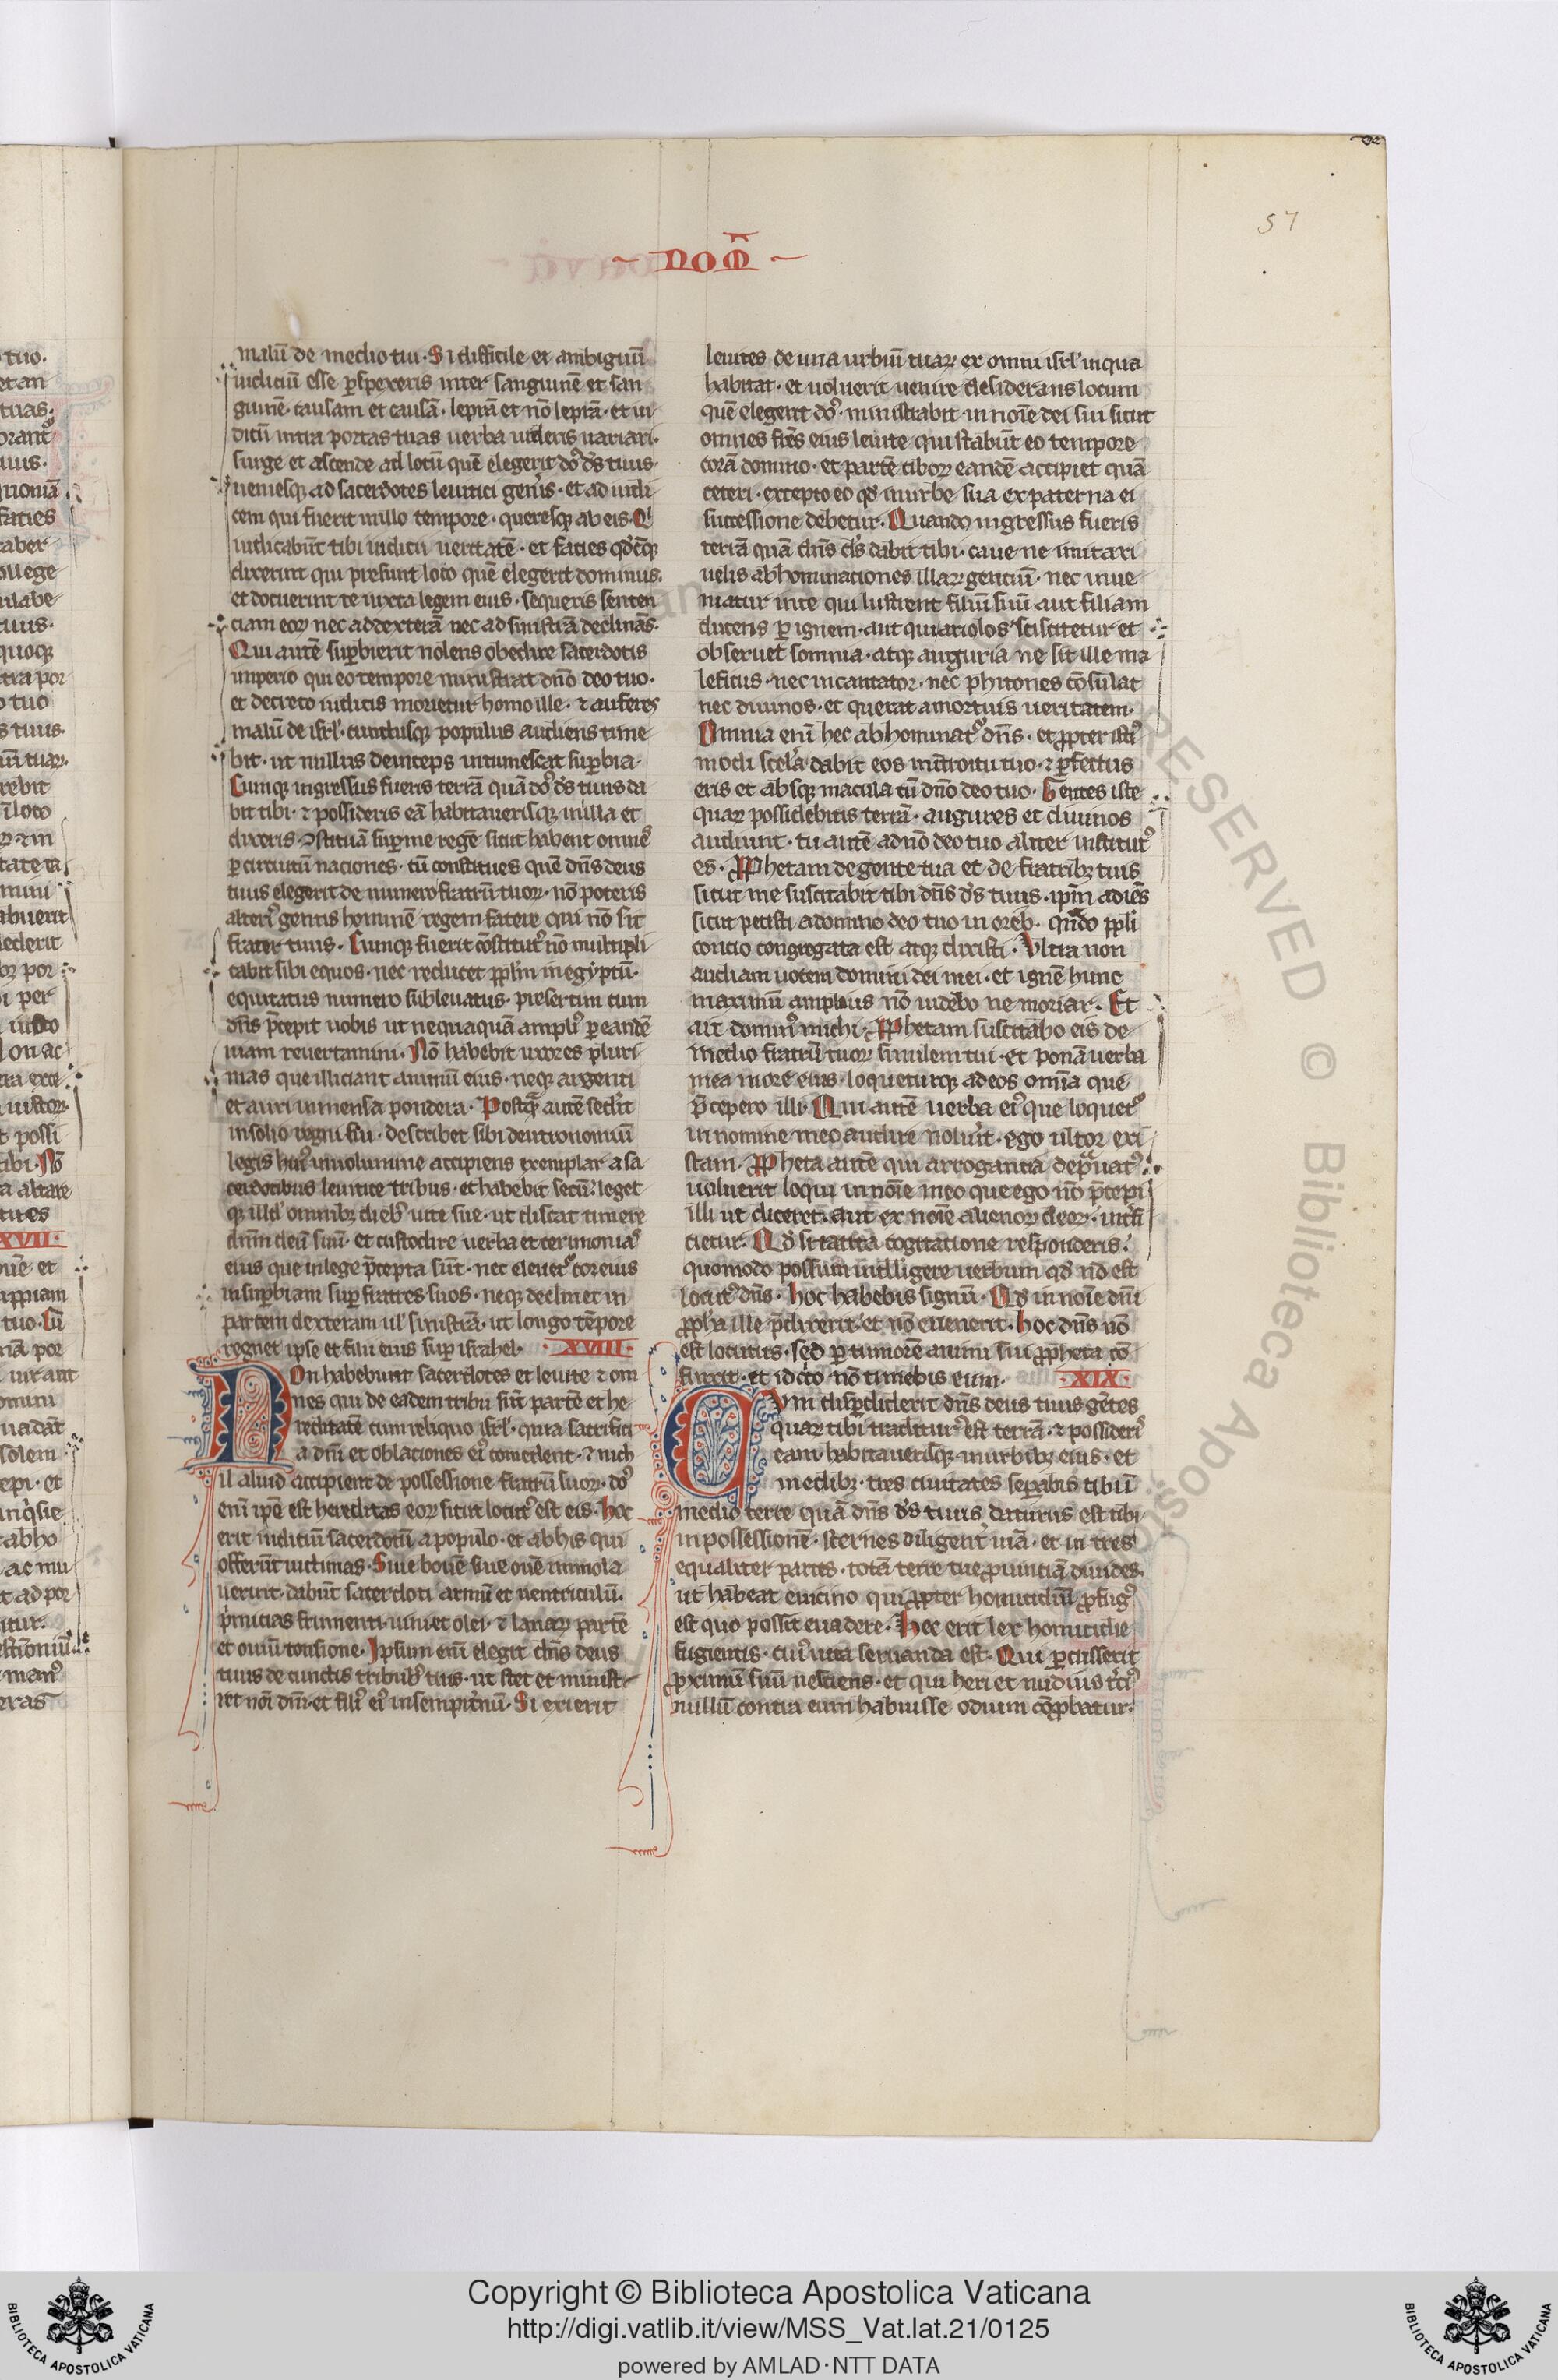 57
nom̄
malū de medio tui· Si difficile et ambiguū
iudiciū esse ꝑspexeris inter sanguinē et san
guinē· causam et causā· leprā et nō leprā· et iu
diciū intra portas tuas uerba uideris uariari·
surge et ascende ad locū quē elegerit dō⁹ dꝰs tuus·
ueniesqꝫ ad sacerdotes leuitici gen̄is· et ad iudi
cem qui fuerit in illo tempore· queresqꝫ ab eis· Q̇
iudicabūt tibi iudicii ueritatē· et facies qd̓cūqꝫ
dixerint qui presunt loco quē elegerit dominus·
et docuerint te iuxta legem eius· sequeris senten
ciam eoꝝ nec ad dexterā nec ad sinistrā declinās·
Qui autē suꝑbierit nolens obedire sacerdotis
imperio qui eo tempore ministrat dn̄o deo tuo·
et decreto iudicis morietur homo ille· ⁊ auferes
malū de isrl̓· cunctusqꝫ populus audiens time
bit· ut nullus deinceps intumescat suꝑbia·
Cumqꝫ ingressus fueris terrā quā dō⁹ dꝰs tuus da
bit tibi· ⁊ possideris eā habitauerisqꝫ in illa et
dixeris· ꝯstituā suꝑ me regē sicut habent omnes
ꝑ circuitū naciones· cū constitues quē dn̄s deus
tuus elegerit de numero fratrū tuoꝝ· nō poteris
alteri⁹ gentis hominē regem facere qui nō sit
frater tuus· Cumqꝫ fuerit cōstitut⁹ nō multipli
cabit sibi equos· nec reducet pplm̄ in egyptū·
equitatus numero subleuatus· presertim cum
dn̄s p̄cepit uobis ut nequaquā ampli⁹ ꝑ eandē
uiam reuertamini· Nō habebit uxores pluri
mas que illiciant animū eius· neqꝫ argenti
et auri inmensa pondera· Postq̄ autē sed̓it
in solio regni sui· describet sibi deutronomiū
legis hui⁹ in uolumine accipiens exemplar a sa
cerdotibus leuitice tribus· et habebit secū· leget
qꝫ illd̓ omnibꝫ dieb⁹ uite sue· ut discat timere
dn̄m deū suū· et custodire uerba et cerimonias
eius que in lege p̄cepta sūt· nec eleuet⁹ cor eius
in suꝑbiam suꝑ fratres suos· neqꝫ declinet in
partem dexteram ul̓ sinistrā· ut longo tēpore
regnet ipse et filii eius suꝑ israhel· XVIII·
Non habebunt sacerdotes et leuite ⁊ om
nes qui de eadem tribu sūt partē et he
reditatē cum reliquo isrl̓· quia sacrifici
a dn̄i et oblationes ei⁹ comedent· ⁊ nich
il aliud accipient de possessione fratrū suoꝝ· dō⁹
enī ip̄e est hereditas eoꝝ sicut locut⁹ est eis· Hoc
erit iudiciū sacerdotū a populo· et ab his qui
offerūt uictimas· Siue bouē siue ouē inmola
uerint· dabūt sacerdoti armū et uentriculū·
p̓micias frumenti· uini et olei· ⁊ lanaꝝ partē
et ouiū tonsione· Ipsum enī elegit dn̄s deus
tuus de cunctis tribub⁹ tuis· ut stet et minist
ret noī dn̄i· et filii ei⁹ in sempit̓nū· Si exierit
leuites de una urbiū tuaꝝ ex omni isrl̓ in qua
habitat· et uoluerit uenire desiderans locum
quē elegerit dō⁹· ministrabit in noīe dei sui sicut
omnes frēs eius leuite qui stabūt eo tempore
corā domino· et partē ciboꝝ eandē accipiet quā
ceteri· excepto eo qd̓ in urbe sua ex paterna ei
successione debetur· Quando ingressus fueris
terrā quā dn̄s dꝰs dabit tibi· caue ne imitari
uelis abhominaciones illaꝝ gentiū· nec inue
niatur in te qui lustrent filiū suū aut filiam
ducens ꝑ ignem· aut qui ariolos sciscitetur et
obseruet somnia· atqꝫ auguria ne sit ille ma
leficus· nec incantator· nec phitones cōsulat
nec diuinos· et querat a mortuis ueritatem·
Omnia enī hec abhominat⁹ dn̄s· et ꝓpter isti⁹
modi scel̓a dabit eos in ītroitu tuo· ⁊ ꝑfectus
eris et absqꝫ macula cū dn̄o deo tuo· Gentes iste
quaꝝ possidebitis terrā· augures et diuinos
audiunt· tu autē a dn̄o deo tuo aliter institut⁹
es· Ꝓphetam de gente tua et de fratribꝫ tuis
sicut me suscitabit tibi dn̄s dꝰs tuus· ipm̄ adies
sicut petisti a domino deo tuo in oreb· qn̄do ppli
concio congregata est atqꝫ dixisti· Vltra non
audiam uocem domini dei mei· et ignē hunc
maximū amplius nō uidebo ne moriar· Et
ait domin⁹ michi· Ꝓphetam suscitabo eis de
medio fratrū tuoꝝ similem tui· et ponā uerba
mea in ore eius· loqueturqꝫ ad eos omīa que
p̄cepero illi· Qui autē uerba ei⁹ que loquet⁹
in nomine meo audire nolu̓it· ego ultor exi
stam· Ꝓpheta autē qui arrogantia dep̄uat⁹
uoluerit loqui in noīe meo que ego nō p̄cepi
illi ut diceret· aut ex noīe alienoꝝ deoꝝ· int̓fi
cietur· Qd̓ si tacita cogitatione responderis·
quomodo possum intelligere uerbum qd̓ nō est
locut⁹ dn̄s· hoc habebis signū· Qd̓ in noīe dn̄i
ꝓph̓a ille p̄dixerit· et nō euenerit· hoc dn̄s nō
est locutus· sed ꝑ tumorē animi sui ꝓpheta cō
finxit· et idcirco nō timebis eum· XIX·
Cvm dispdiderit dn̄s deus tuus gētes
quaꝝ tibi traditur⁹ est terrā· ⁊ possider̓
eam· habitauerisqꝫ in urbibꝫ eius· et
in edibꝫ· tres ciuitates separabis tibi ī
medio terre quā dn̄s dꝰs tuus daturus est tibi
in possessionē· sternes diligent̓ uiā· et in tres
equaliter partes· totā terre tue ꝓuinciā diuides·
ut habeat e uicino qui ꝓpter homicidiū ꝓfug⁹
est quo possit euadere· Hec erit lex homicidie
fugientis· cui⁹ uita seruanda est· Qui ꝑcusserit
ꝓximū suū nesciens· et qui heri et nudius t̓ci⁹
nullū contra eum habuisse odium cōꝓbatur·
Copyright © Biblioteca Apostolica Vaticana
http://digi.vatlib.it/view/MSS_Vat.lat.21/0125
powered by AMLAD·NTT DATA
BIBLIOTECA APOSTOLICA VATICANA
BIBLIOTECA APOSTOLICA VATICANA